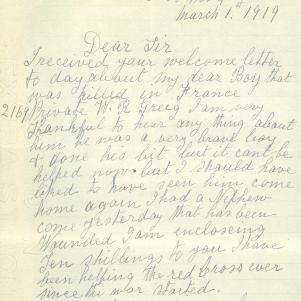 March 1st 1919
Dear Sir
I received your welcome letter
to day about my dear Boy that
was killed in France
2169 Private W. R. Greig I am very
thankful to hear any thing about
him he was a very brave boy
& done his bit but it cant be
helped now but I should have
liked to have seen him come
home again I had a Nephew
come yesterday that has been
Wounded I am enclosing
Ten shillings to you I have
been helping the red Cross ever
since the war started.